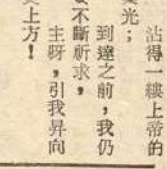 沾得一縷上帝的
光；
到達之前，我仍
不斷祈求，
主呀，引我昇向
上方！